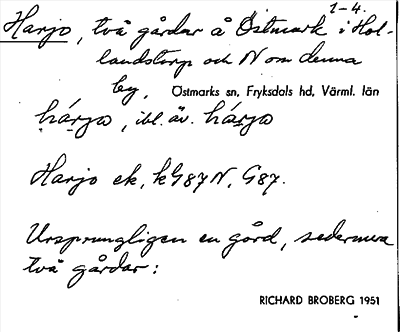 1-4.
Harjo, två gårdar å Östmark i Hol-
landstorp och N om denna
by, Östmarks sn, Fryksdals hd, Värml. län
hárjω, ibl. äv. hárjω
Harjo ek, kG87N, G87.
Ursprungligen en gård, sedermera
två gårdar:
RICHARD BROBERG 1951